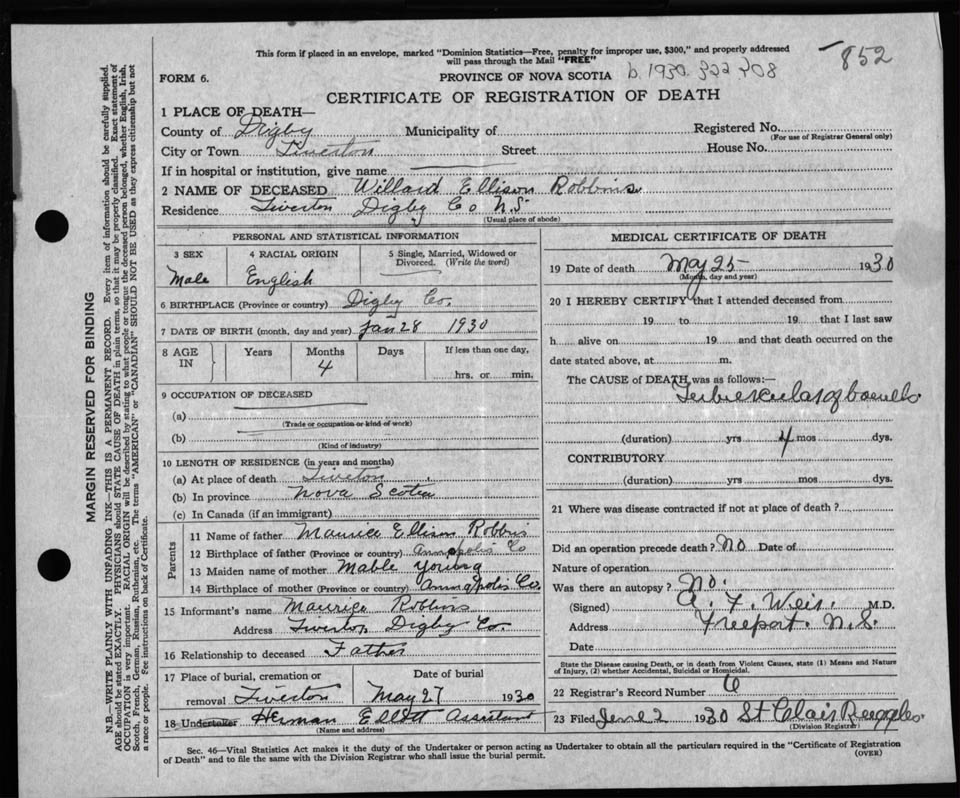 This form if placed in an envelope, marked "Dominion Statistics—Free, penalty for improper use, $300," and properly addressed
will pass through the Mail "FREE"
852
FORM 6.
PROVINCE OF NOVA SCOTIA
b. 1930. 322 708
CERTIFICATE OF REGISTRATION OF DEATH
1 PLACE OF DEATH—
County of Digby Municipality of Registered No.
(For use of Registrar General only)
City or Town Tiverton Street House No.
If in hospital or institution, give name
2 NAME OF DECEASED Willard Ellison Robbins
Residence Tiverton Digby Co N.S.
(Usual place of abode)
PERSONAL AND STATISTICAL INFORMATION
3 SEX 4 RACIAL ORIGIN 5 Single, Married, Widowed or Divorced. (Write the word)
Male English
6 BIRTHPLACE (Province or country) Digby Co.
7 DATE OF BIRTH (month, day and year) Jan 28 1930
8 AGE IN Years Months Days If less than one day,
4 hrs. or min.
9 OCCUPATION OF DECEASED
(a)
(Trade or occupation or kind of work)
(b)
(Kind of industry)
10 LENGTH OF RESIDENCE (in years and months)
(a) At place of death Tiverton
(b) In province Nova Scotia
(c) In Canada (if an immigrant)
Parents
11 Name of father Maurice Ellison Robbins
12 Birthplace of father (Province or country) Annapolis Co
13 Maiden name of mother Mable Young
14 Birthplace of mother (Province or country) Annapolis Co.
15 Informant's name Maurice Robbins
Address Tiverton Digby Co.
16 Relationship to deceased Father
17 Place of burial, cremation or Date of burial
removal Tiverton May 27 1930
18 Undertaker Herman Elliott Assistant
(Name and address)
MEDICAL CERTIFICATE OF DEATH
19 Date of death May 25 1930
(Month, day and year)
20 I HEREBY CERTIFY that I attended deceased from
19 to 19 that I last saw
h alive on 19 and that death occurred on the
date stated above, at m.
The CAUSE of DEATH was as follows:—
Tuberkulas of bowells.
(duration) yrs 4 mos dys.
CONTRIBUTORY
(duration) yrs mos dys.
21 Where was disease contracted if not at place of death?
Did an operation precede death? No Date of
Nature of operation
Was there an autopsy? No.
(Signed) A. F. Weir. M.D.
Address Freeport. N.S.
Date
State the Disease causing Death, or in death from Violent Causes, state (1) Means and Nature
of Injury, (2) whether Accidental, Suicidal or Homicidal.
22 Registrar's Record Number 6
23 Filed June 2 1930 St Clair Ruggles.
(Division Registrar)
Sec. 46—Vital Statistics Act makes it the duty of the Undertaker or person acting as Undertaker to obtain all the particulars required in the "Certificate of Registration
of Death" and to file the same with the Division Registrar who shall issue the burial permit. (OVER)
MARGIN RESERVED FOR BINDING
N.B.—WRITE PLAINLY WITH UNFADING INK—THIS IS A PERMANENT RECORD. Every item of information should be carefully supplied.
AGE should be stated EXACTLY. PHYSICIANS should STATE CAUSE OF DEATH in plain terms, so that it may be properly classified. Exact statement of
OCCUPATION is very important. RACIAL ORIGIN will be described by stating to what people or tongue the deceased person belonged, whether English, Irish,
Scotch, French, German, Russian, Ruthenian, etc. The terms "AMERICAN" or "CANADIAN" SHOULD NOT BE USED as they express citizenship but not
a race or people. Fee instructions on back of Certificate.